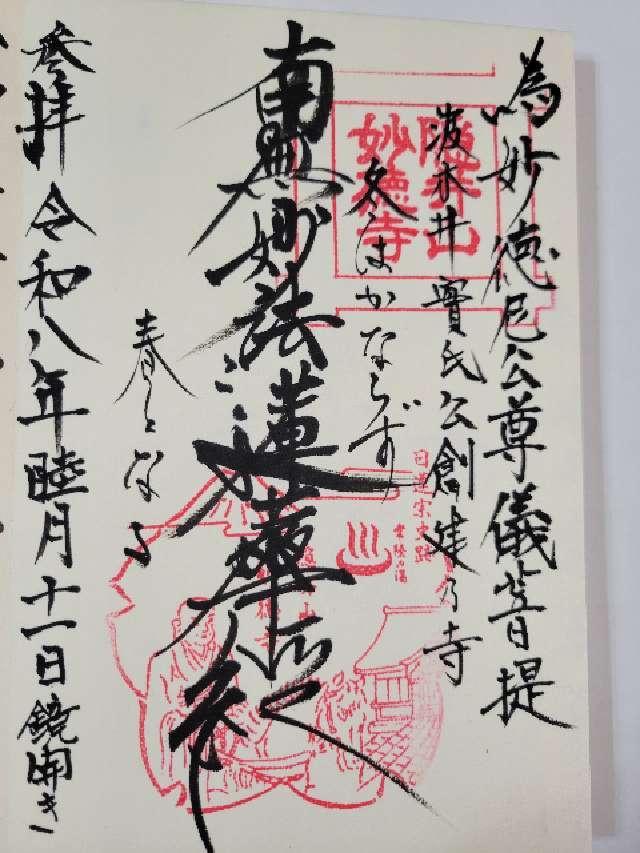 為妙徳尼公尊儀菩提
波木井實氏公創建乃寺
隠井山
妙徳寺
冬はかならず
南無妙法蓮華経
春となる
参拝 令和八年睦月十一日鏡開き
日蓮宗史跡
常陸の湯